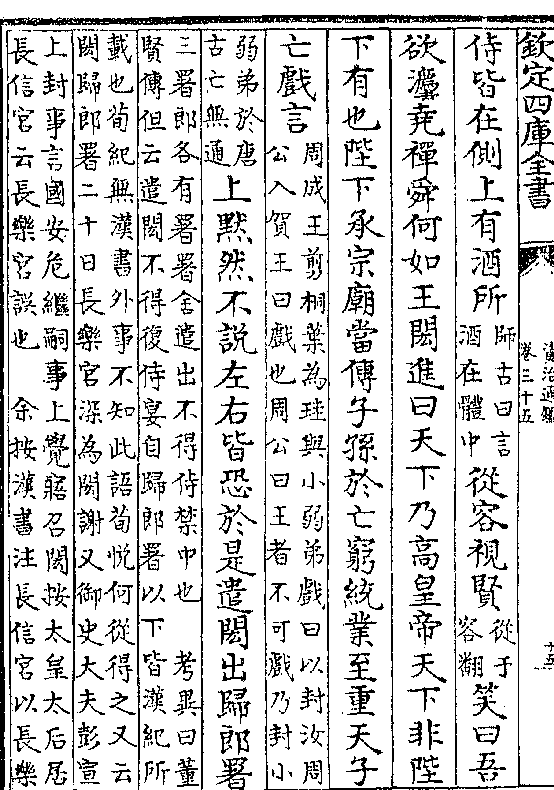 欽定四庫全書
資治通鑑
卷三十五
侍皆在側上有酒所
師古曰言
酒在體中
從容視賢
從于
容翻
笑曰吾
欲灋堯禪舜何如王閎進曰天下乃高皇帝天下非陛
下有也陛下承宗廟當傳子孫於亡窮統業至重天子
亡戲言
周成王剪桐葉為珪與小弱弟戲曰以封汝周
公入賀王曰戲也周公曰王者不可戲乃封小
弱弟於唐
古亡無通
上默然不說左右皆恐於是遣閎出歸郎署
三署郎各有署署舍遣出不得侍禁中也 考異曰董
賢傳但云遣閎不得復侍宴自歸郎署以下皆漢紀所
載也荀紀無漢書外事不知此語荀悅何從得之又云
閎歸郎署二十日長樂宮深為閎謝又御史大夫彭宣
上封事言國安危繼嗣事上覺寤召閎按太皇太后居
長信宮云長樂宮誤也 余按漢書注長信宮以長樂